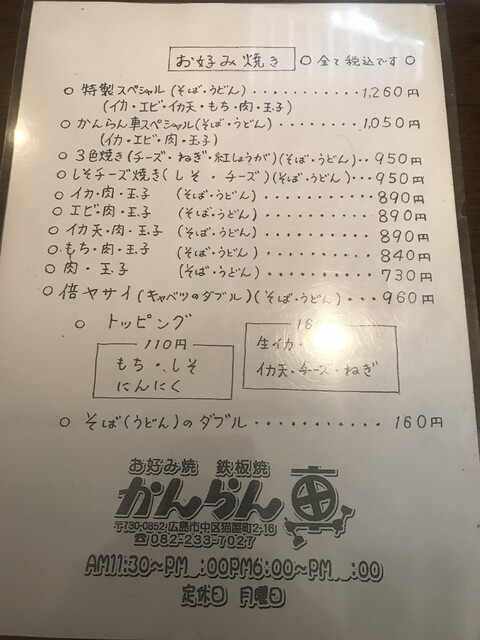 お好み焼き ○ 全て税込です ○
○ 特製スペシャル(そば・うどん)・・・・・・・・・・・1,260円
(イカ・エビ・イカ天・もち・肉・玉子)
○ かんらん車スペシャル(そば・うどん)・・・・・・・・・1,050円
(イカ・エビ・肉・玉子)
○ 3色焼き(チーズ・ねぎ・紅しょうが)(そば・うどん)・・950円
○ しそチーズ焼き(しそ・チーズ)(そば・うどん)・・・950円
○ イカ・肉・玉子 (そば・うどん)・・・・・・・・・・890円
○ エビ・肉・玉子 (そば・うどん)・・・・・・・・・・890円
○ イカ天・肉・玉子 (そば・うどん)・・・・・・・・・890円
○ もち・肉・玉子 (そば・うどん)・・・・・・・・・・840円
○ 肉・玉子 (そば・うどん)・・・・・・・・・・730円
○ 倍ヤサイ(キャベツのダブル)(そば・うどん)・・・960円
○ トッピング
110円
もち・しそ
にんにく
生イカ・
イカ天・チーズ・ねぎ
○ そば(うどん)のダブル・・・・・・・・・・・・160円
お好み焼 鉄板焼
かんらん車
〒730-0852 広島市中区猫屋町2-16
☎082-233-7027
AM11:30〜PM :00PM6:00〜PM :00
定休日 月曜日